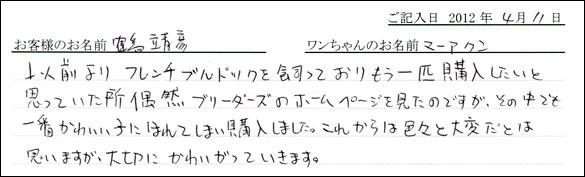 ご記入日 2012年 4月 11日
お客様のお名前 鶴 靖彦 ワンちゃんのお名前 マーアクン
以前より フレンチブルドックを飼っており もう一匹購入したいと
思っていた所 偶然、ブリーダーズのホームページを見たのですが、その中でも
一番かわいい子にほれてしまい購入しました。これからは色々と大変だとは
思いますが、大切に かわいがっていきます。